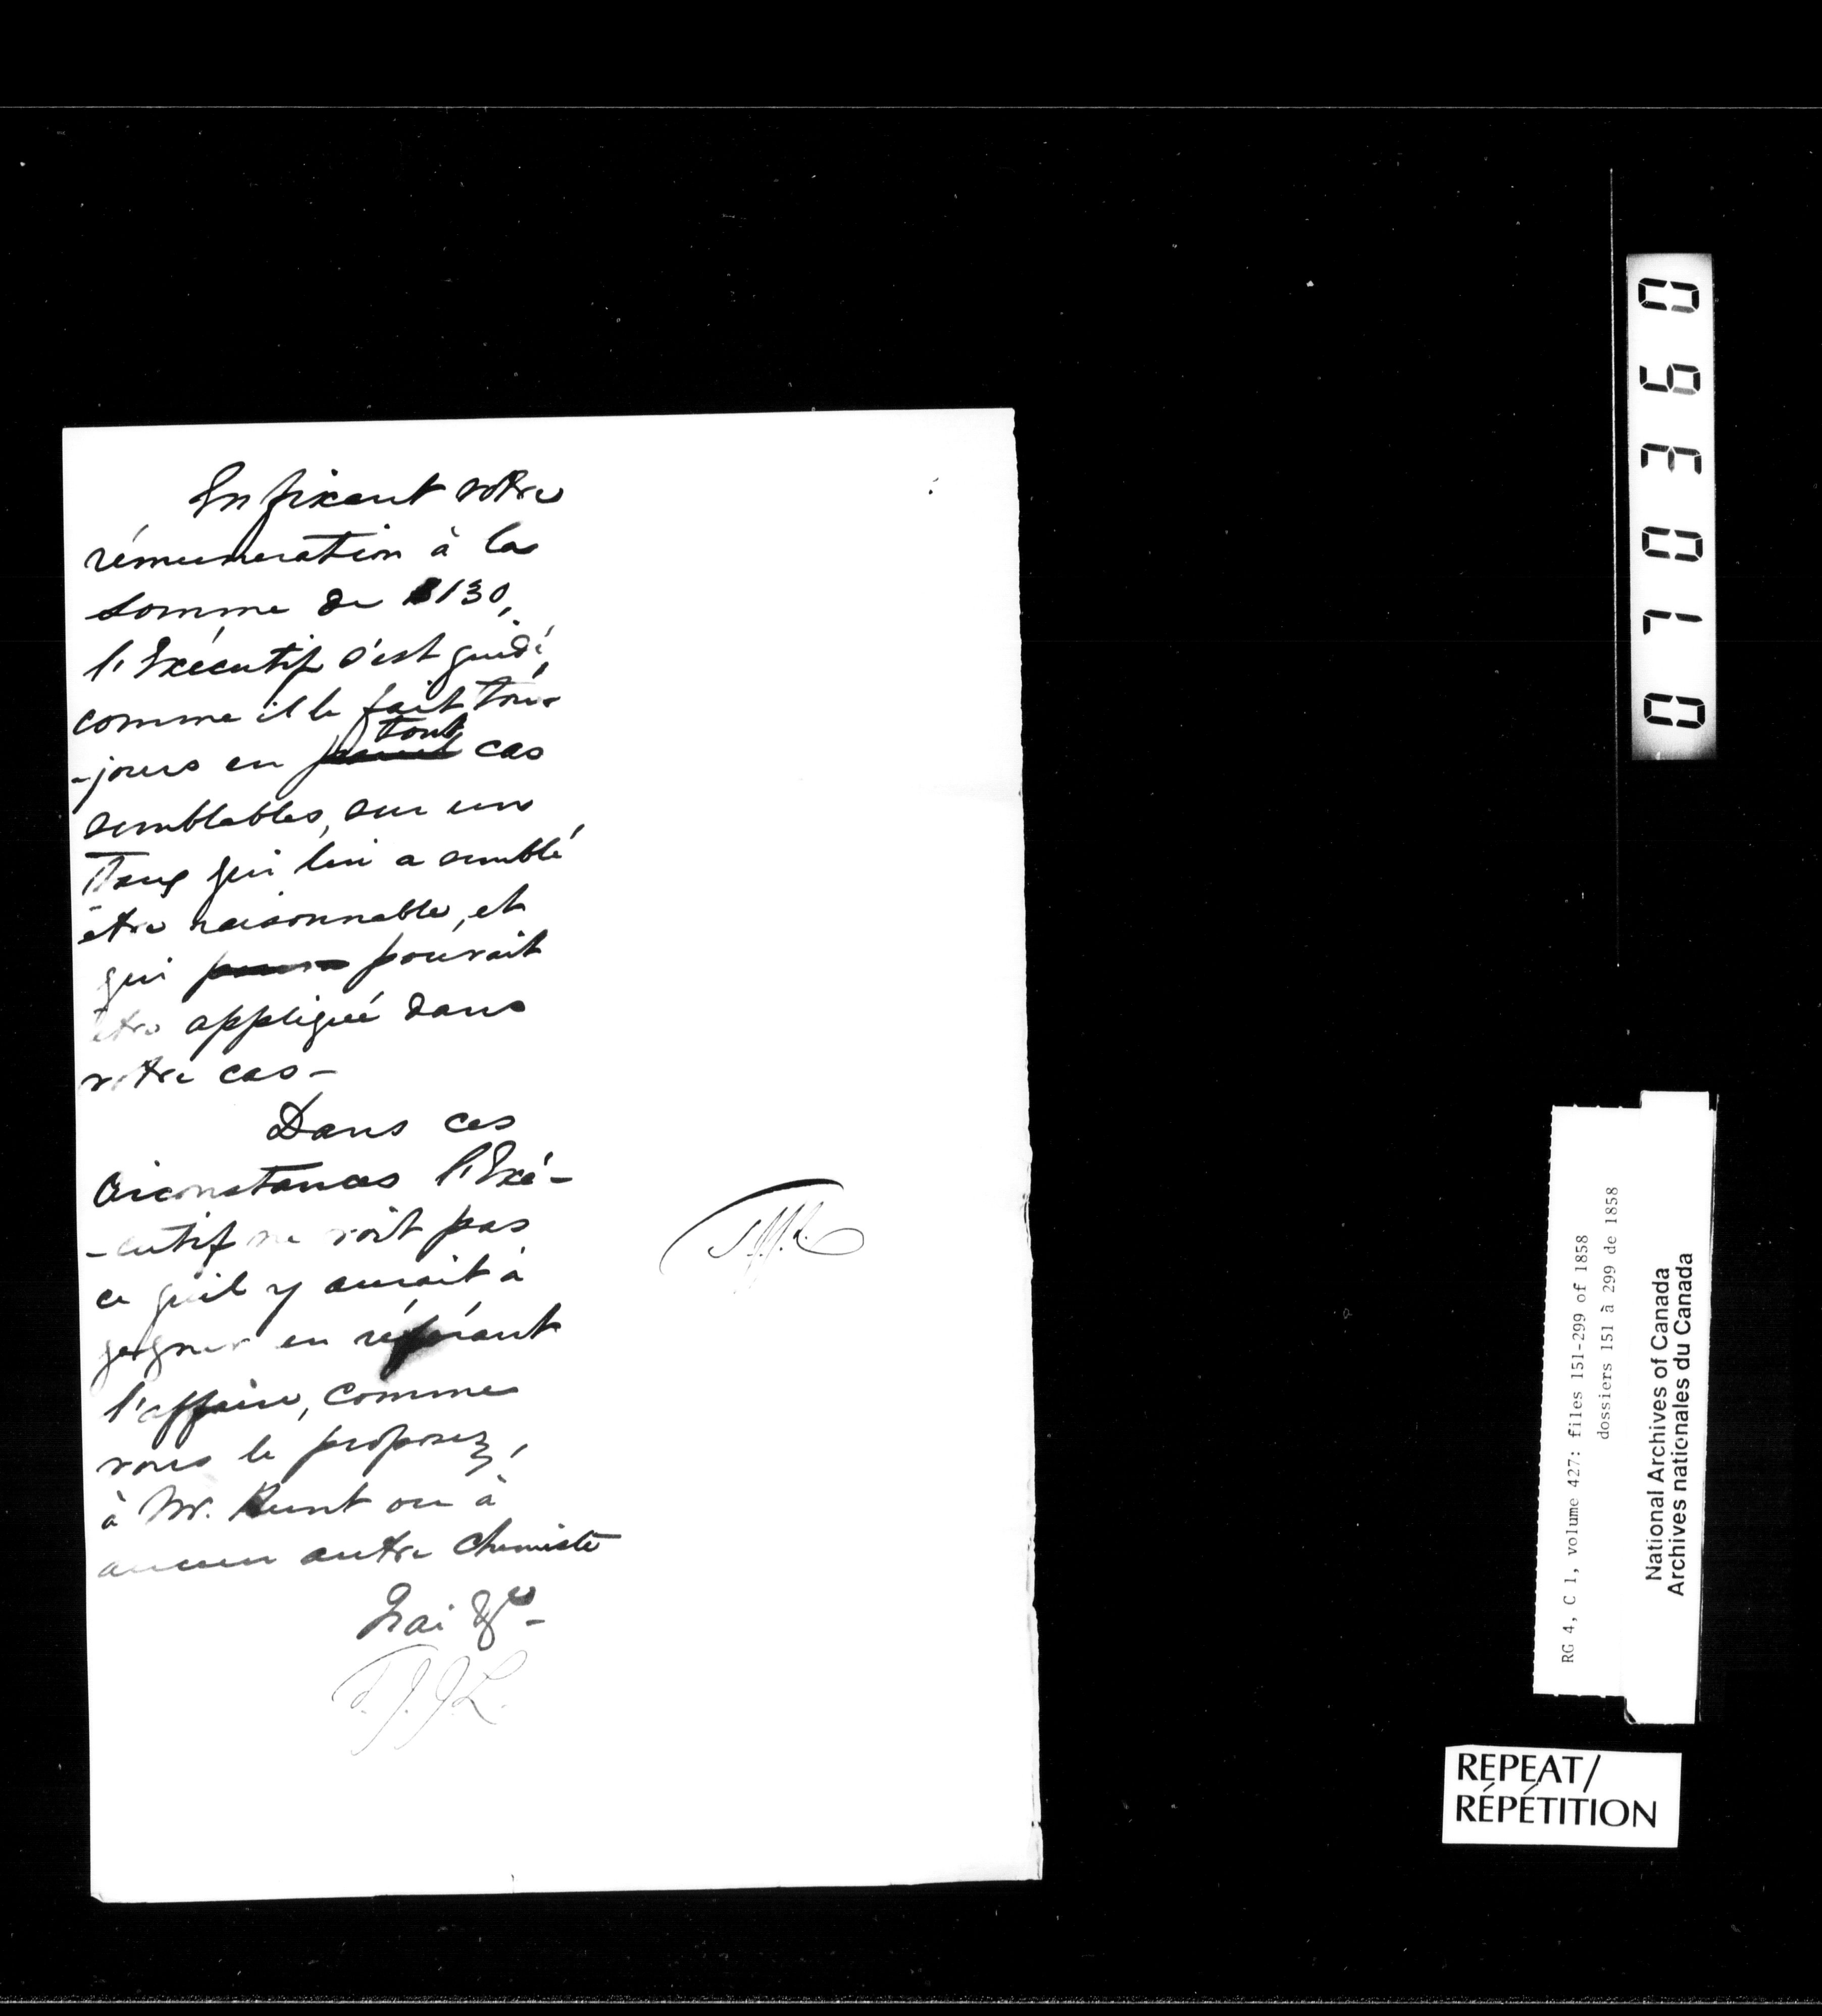 En fixant votre
rémuneration à la
somme de $130,
l'Exécutif s'est guidé,
comme il le fait tou-
-jours en tout cas
semblables, sur un
Taux qui lui a semblé
être raisonnable, et
qui pouvait
être appliqué dans
votre cas-
Dans ces
circonstances l'Exé-
-cutif ne voit pas
ce qu'il y aurait à
gagner en référant
l'affaire, comme
vous le proposez,
à Mr. Hunt ou à
aucun autre Chemiste
J'ai &c-
T.J.J.L.
0 7 0 3 6 0
RG 4, C 1, volume 427: files 151-299 of 1858
dossiers 151 à 299 de 1858
National Archives of Canada
Archives nationales du Canada
REPEAT/
RÉPÉTITION